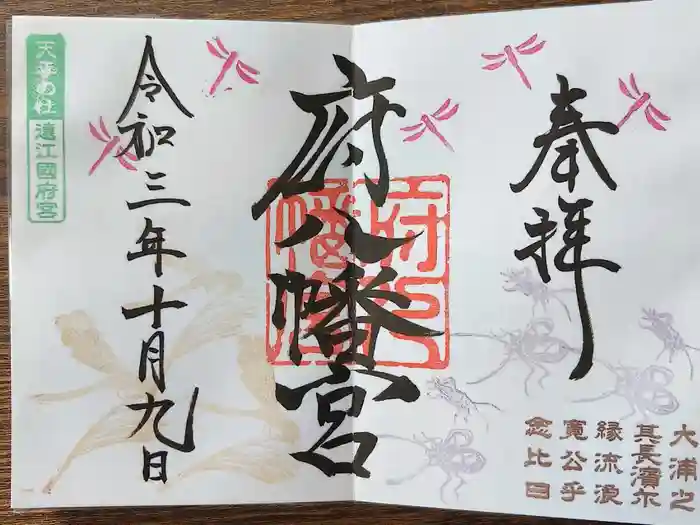 奉拝
大浦之
其長濱尓
縁流浪
寛公乎
念比日
府八幡宮
府八幡宮印
令和三年十月九日
天平の社
遠江國府宮